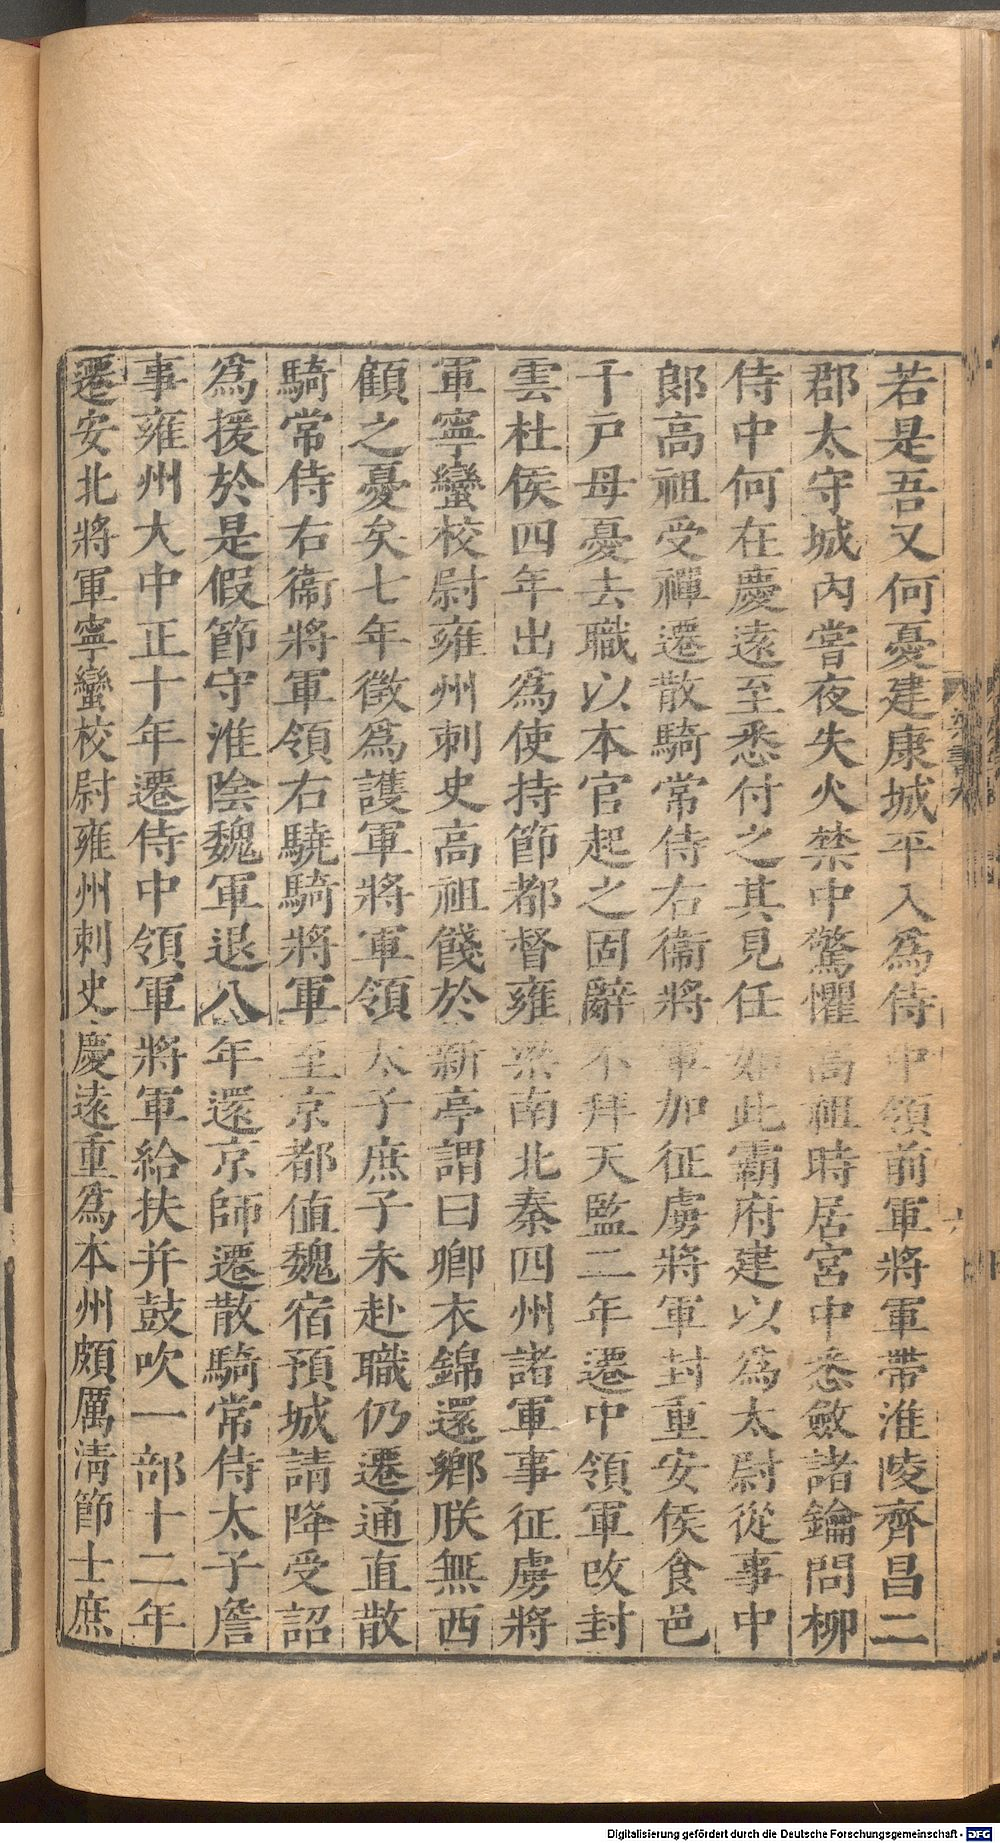 若是吾又何憂建康城平入爲侍中領前軍將軍帶淮陵齊昌二
郡太守城內嘗夜失火禁中驚懼高祖時居宮中悉斂諸鑰問柳
侍中何在慶遠至悉付之其見任如此霸府建以爲太尉從事中
郎高祖受禪遷散騎常侍右衞將軍加征虜將軍封重安侯食邑
千戸母憂去職以本官起之固辭不拜天監二年遷中領軍改封
雲杜侯四年出爲使持節都督雍梁南北秦四州諸軍事征虜將
軍寧蠻校尉雍州刺史高祖餞於新亭謂曰卿衣錦還鄉朕無西
顧之憂矣七年徵爲護軍將軍領太子庶子未赴職仍遷通直散
騎常侍右衞將軍領右驍騎將軍至京都值魏宿預城請降受詔
爲援於是假節守淮陰魏軍退八年還京師遷散騎常侍太子詹
事雍州大中正十年遷侍中領軍將軍給扶并鼓吹一部十二年
遷安北將軍寧蠻校尉雍州刺史慶遠重爲本州頗厲清節士庶
梁書九
Digitalisierung gefördert durch die Deutsche Forschungsgemeinschaft - DFG